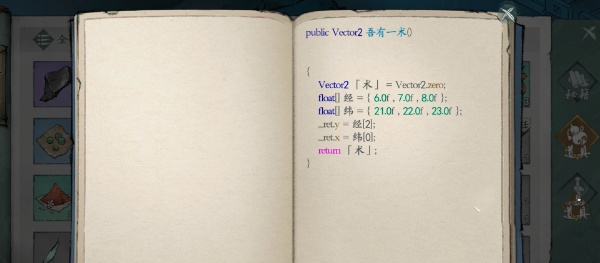 public Vector2 吾有一术()
{
Vector2 「术」 = Vector2.zero;
float[] 经 = { 6.0f , 7.0f , 8.0f };
float[] 纬 = { 21.0f , 22.0f , 23.0f };
_ret.y = 经[2];
_ret.x = 纬[0];
return 「术」;
}
全
道具